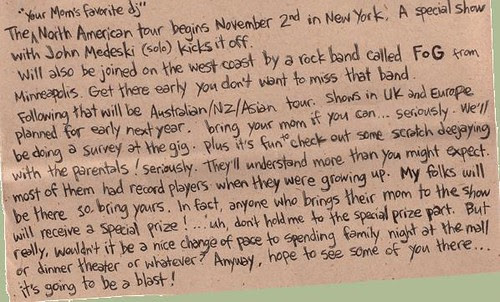 "Your Mom's favorite dj"
The ^ North American tour begins November 2nd in New York. A special show
with John Medeski (solo) kicks it off.
Will also be joined on the west coast by a rock band called FoG from
Minneapolis. Get there early you don't want to miss that band.
Following that will be Australian/NZ/Asian tour. Shows in UK and Europe
planned for early next year. bring your mom if you can... seriously. We'll
be doing a survey at the gig. plus it's fun to check out some scratch deejaying
with the parentals! Seriously. They'll understand more than you might expect.
most of them had record players when they were growing up. My folks will
be there so bring yours. In fact, anyone who brings their mom to the show
will receive a special prize! ...uh, don't hold me to the special prize part. But
really, wouldn't it be a nice change of pace to spending family night at the mall
or dinner theater or whatever? Anyway, hope to see some of you there...
it's going to be a blast!